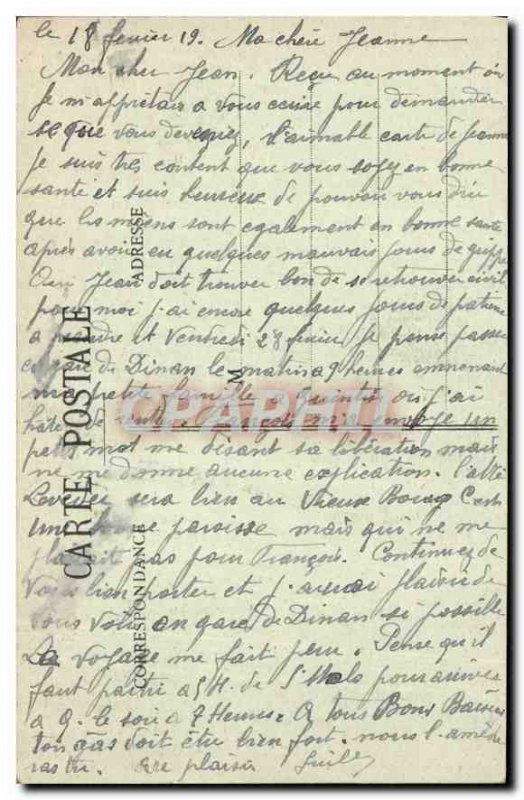 le 18 fevrier 19. Ma chère Jeanne
Mon cher Jean. Reçu au moment où
Je m'apprétais a vous ecrire pour demander
se que vous devenez, l'aimable carte de Jeanne
Je suis tres content que vous soyez en bonne
santé et suis heureux de pouvoir vous dire
que les miens sont egalement en bonne santé
après avoir eu quelques mauvais jours de grippe
Jean doit trouver bon de se retrouver civil
pour moi j'ai encore quelques jours de patience
a prendre et Vendredi 28 fevrier Je pense passer
en gare de Dinan le matin a 9 heures emmenant
ma petite famille a Quintin où j'ai
hâte de François m'a envoyé un
petit mot me disant sa libération mais
ne me donne aucune explication. l'abbé
sera bien au Vieux Bourg C'est
une bonne paroisse mais qui ne me
plairait pas pour François. Continuez de
vous bien porter et j'aurai plaisir de
vous voir en gare de Dinan si possible
Le voyage me fait peur. Pense qu'il
faut partir a 5 H. de St Malo pour arriver
a Q. le soir a 7 Heures. A tous Bons Baisers
ton gâs doit être bien fort. nous l'amè
ras tu. plaisir
CARTE POSTALE
CORRESPONDANCE
ADRESSE
M
CPAPHIL